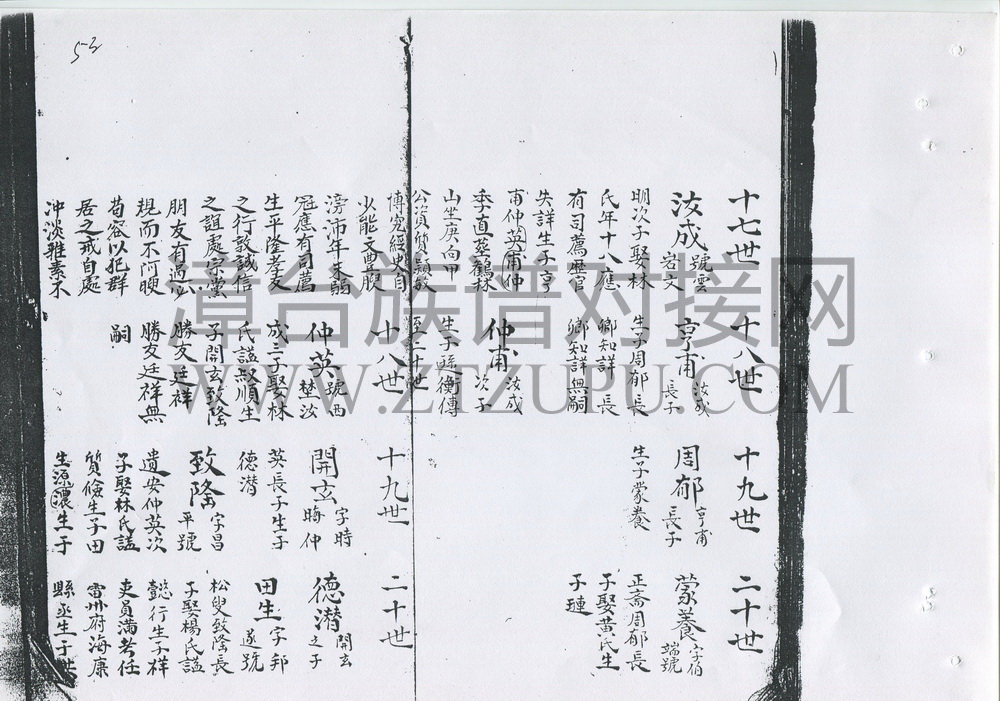 53
十七世
汝成 號雲
岩文
明次子娶林
氏年十八應
有司薦歷官
失詳生子亨
甫仲英甫仲
季直葬鶴林
山坐庚向甲
公資質穎敏
博究經史自
少能文豐股
滂沛年未弱
冠應有司薦
生平隆孝友
之行敦誠信
之誼處宗黨
朋友有過必
規而不阿諛
苟容以犯群
居之戒自處
沖淡雅素不
十八世
亨甫 汝成
長子
生子周郁 長
卿知詳 長
卿知詳無嗣
仲甫 汝成
次子
生子 衡傳
至二十世
十八世
仲英 號西
埜汝
成三子娶林
氏謚叔順生
子開玄致隆
勝友廷祥
勝友廷祥無
嗣
十九世
周郁 亨甫
長子
生子蒙養
十九世
開玄 字時
晦仲
英長子生子
德潜
致隆 字昌
平號
遺安仲英次
子娶林氏謚
質儉生子田
生源濃生于
二十世
蒙養 字伯
端號
正斎周郁長
子娶黃氏生
子璉
二十世
德潜 開玄
之子
田生 字邦
遂號
松叟致隆長
子娶楊氏謚
懿行生子祥
吏員滿考任
雷州府海康
縣丞生于
漳台族谱对接网
WWW.ZTZUPU.COM